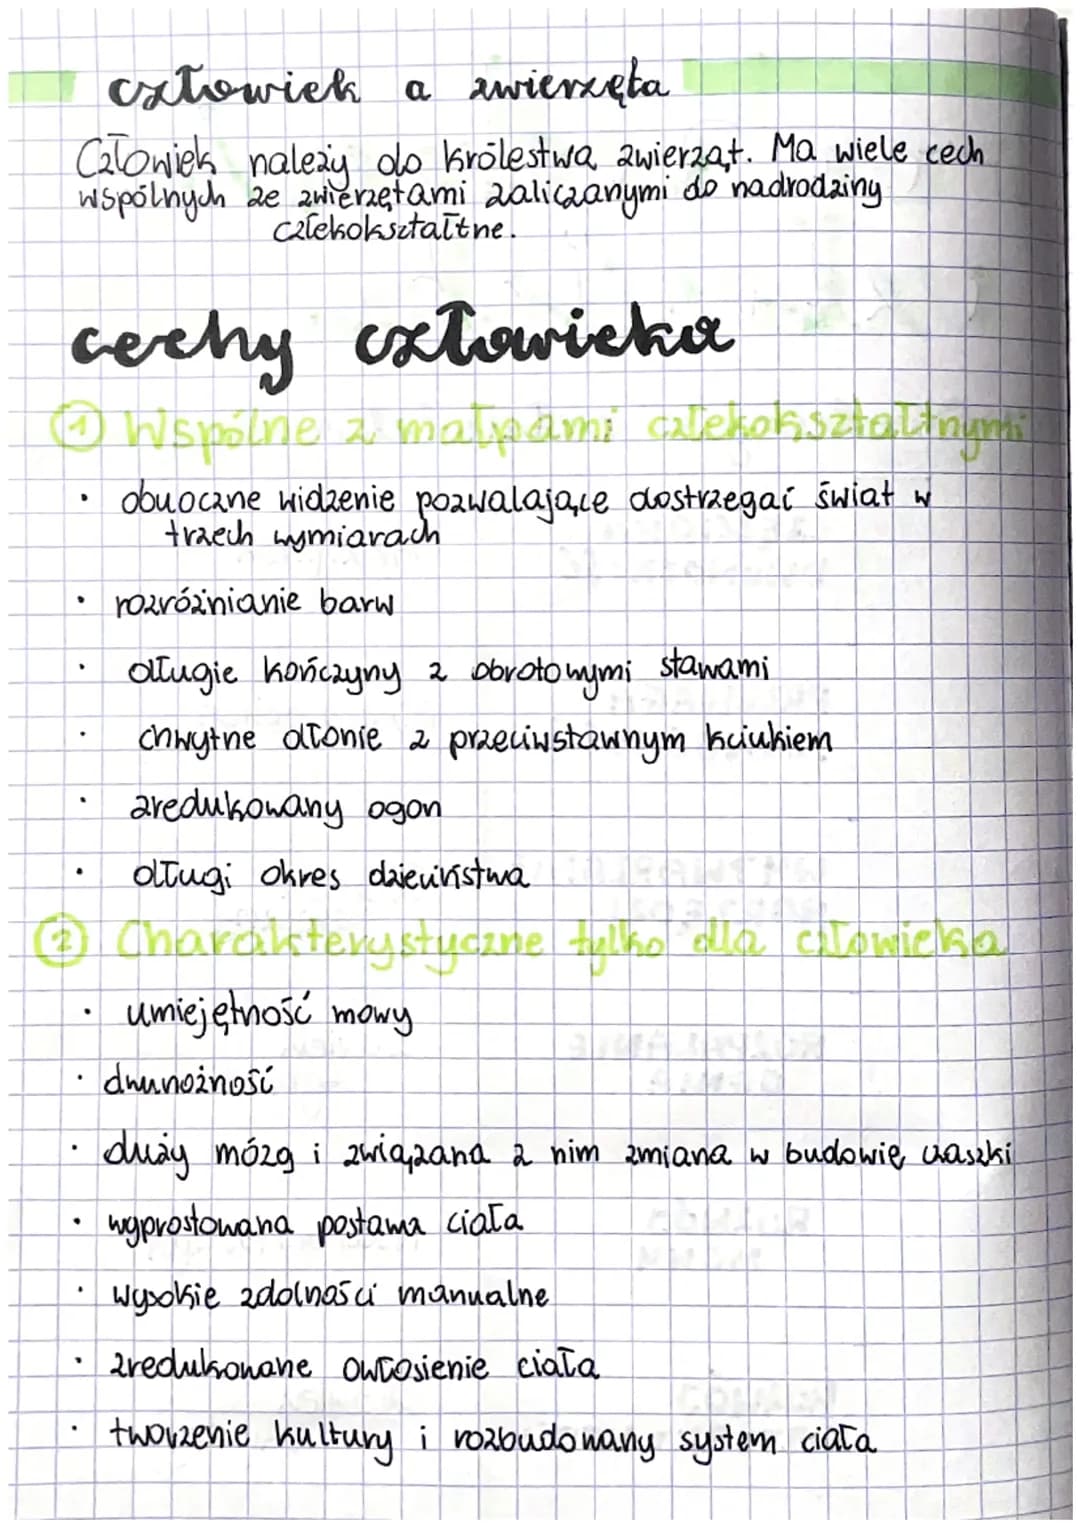 człowiek a zwierzęta
Człowiek należy do królestwa zwierząt. Ma wiele cech
wspólnych ze zwierzętami zaliczanymi do nadrodziny
człekokształtne.
cechy człowieka
1 Wspólne z małpami człekokształtnymi
• obuoczne widzenie pozwalające dostrzegać świat w
trzech wymiarach
• rozróżnianie barw
• długie kończyny z obrotowymi stawami
• chwytne dłonie z przeciwstawnym kciukiem
• zredukowany ogon
• długi okres dzieciństwa
2 Charakterystyczne tylko dla człowieka
• umiejętność mowy
• dwunożność
• duży mózg i związana z nim zmiana w budowie czaszki
• wyprostowana postawa ciała
• wysokie zdolności manualne
• zredukowane owłosienie ciała
• tworzenie kultury i rozbudowany system ciała